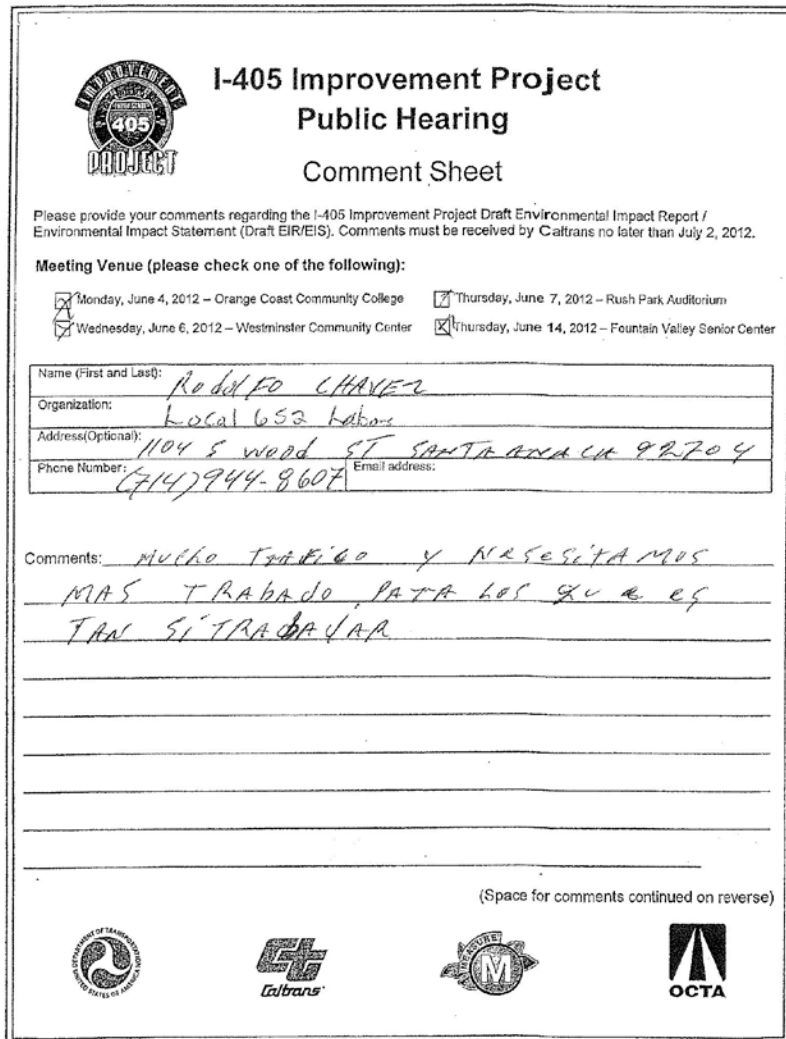 IMPROVEMENT
405
PROJECT
I-405 Improvement Project
Public Hearing
Comment Sheet
Please provide your comments regarding the I-405 Improvement Project Draft Environmental Impact Report /
Environmental Impact Statement (Draft EIR/EIS). Comments must be received by Caltrans no later than July 2, 2012.
Meeting Venue (please check one of the following):
Monday, June 4, 2012 – Orange Coast Community College
Thursday, June 7, 2012 – Rush Park Auditorium
Wednesday, June 6, 2012 – Westminster Community Center
Thursday, June 14, 2012 – Fountain Valley Senior Center
Name (First and Last): RodolFO CHAVEZ
Organization: Local 652 Labor
Address(Optional): 1104 S WOOD ST SANTA ANA CA 92704
Phone Number: (714)944-8607 Email address:
Comments: MUCHO TRAFICO Y NESESITAMOS
MAS TRABADO PATA LOS QUE ES
TAN SI TRABAYAR
(Space for comments continued on reverse)
DEPARTMENT OF TRANSPORTATION
UNITED STATES OF AMERICA
Caltrans
MEASURE
M
OCTA